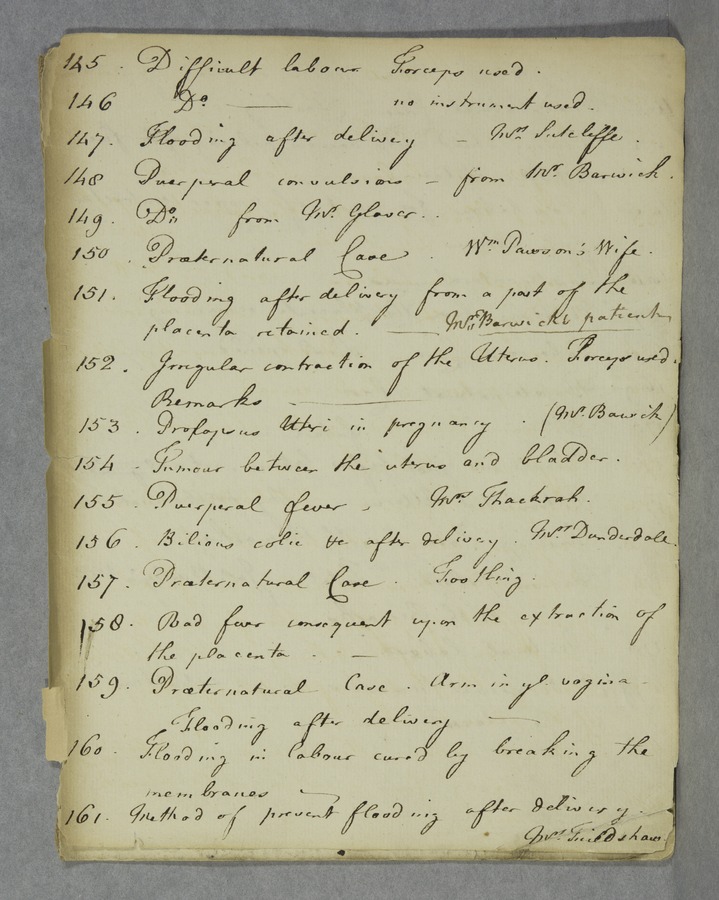 145. Difficult labour Forceps used.
146 Do. — no instrument used.
147. Flooding after delivery — Mrs. Sutcliffe.
148 Puerperal convulsions — from Mr. Barwick.
149. Do. from Mr. Glover.
150. Præternatural Case. Wm. Pawson's Wife.
151. Flooding after delivery from a part of the
placenta retained. — Mr. Barwick's patient
152. Irregular contraction of the Uterus. Forceps used.
Remarks —
153. Prolapsus Uteri in pregnancy. (Mr. Bawick)
154 Tumour between the uterus and bladder.
155 Puerperal fever — Mrs Thackrah.
156. Bilious colic &c after delivery. Mrs. Dunderdale.
157. Præternatural Case. Footling.
158. Bad fever consequent upon the extraction of
the placenta. —
159. Præternatural Case. Arm in ye. vagina
Flooding after delivery —
160. Flooding in labour cured by breaking the
membranes —
161. Method of prevent flooding after delivery.